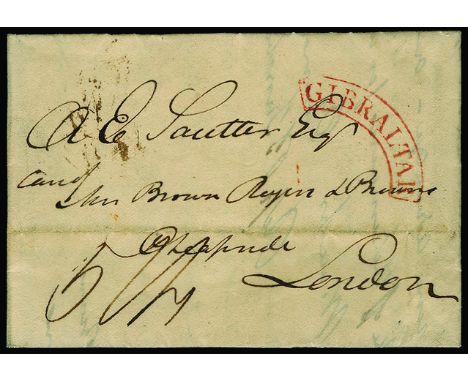 GIBRALTAR
A E Sautter Esq
care Mrs Brown Rogers & Browne
Cheapside
London